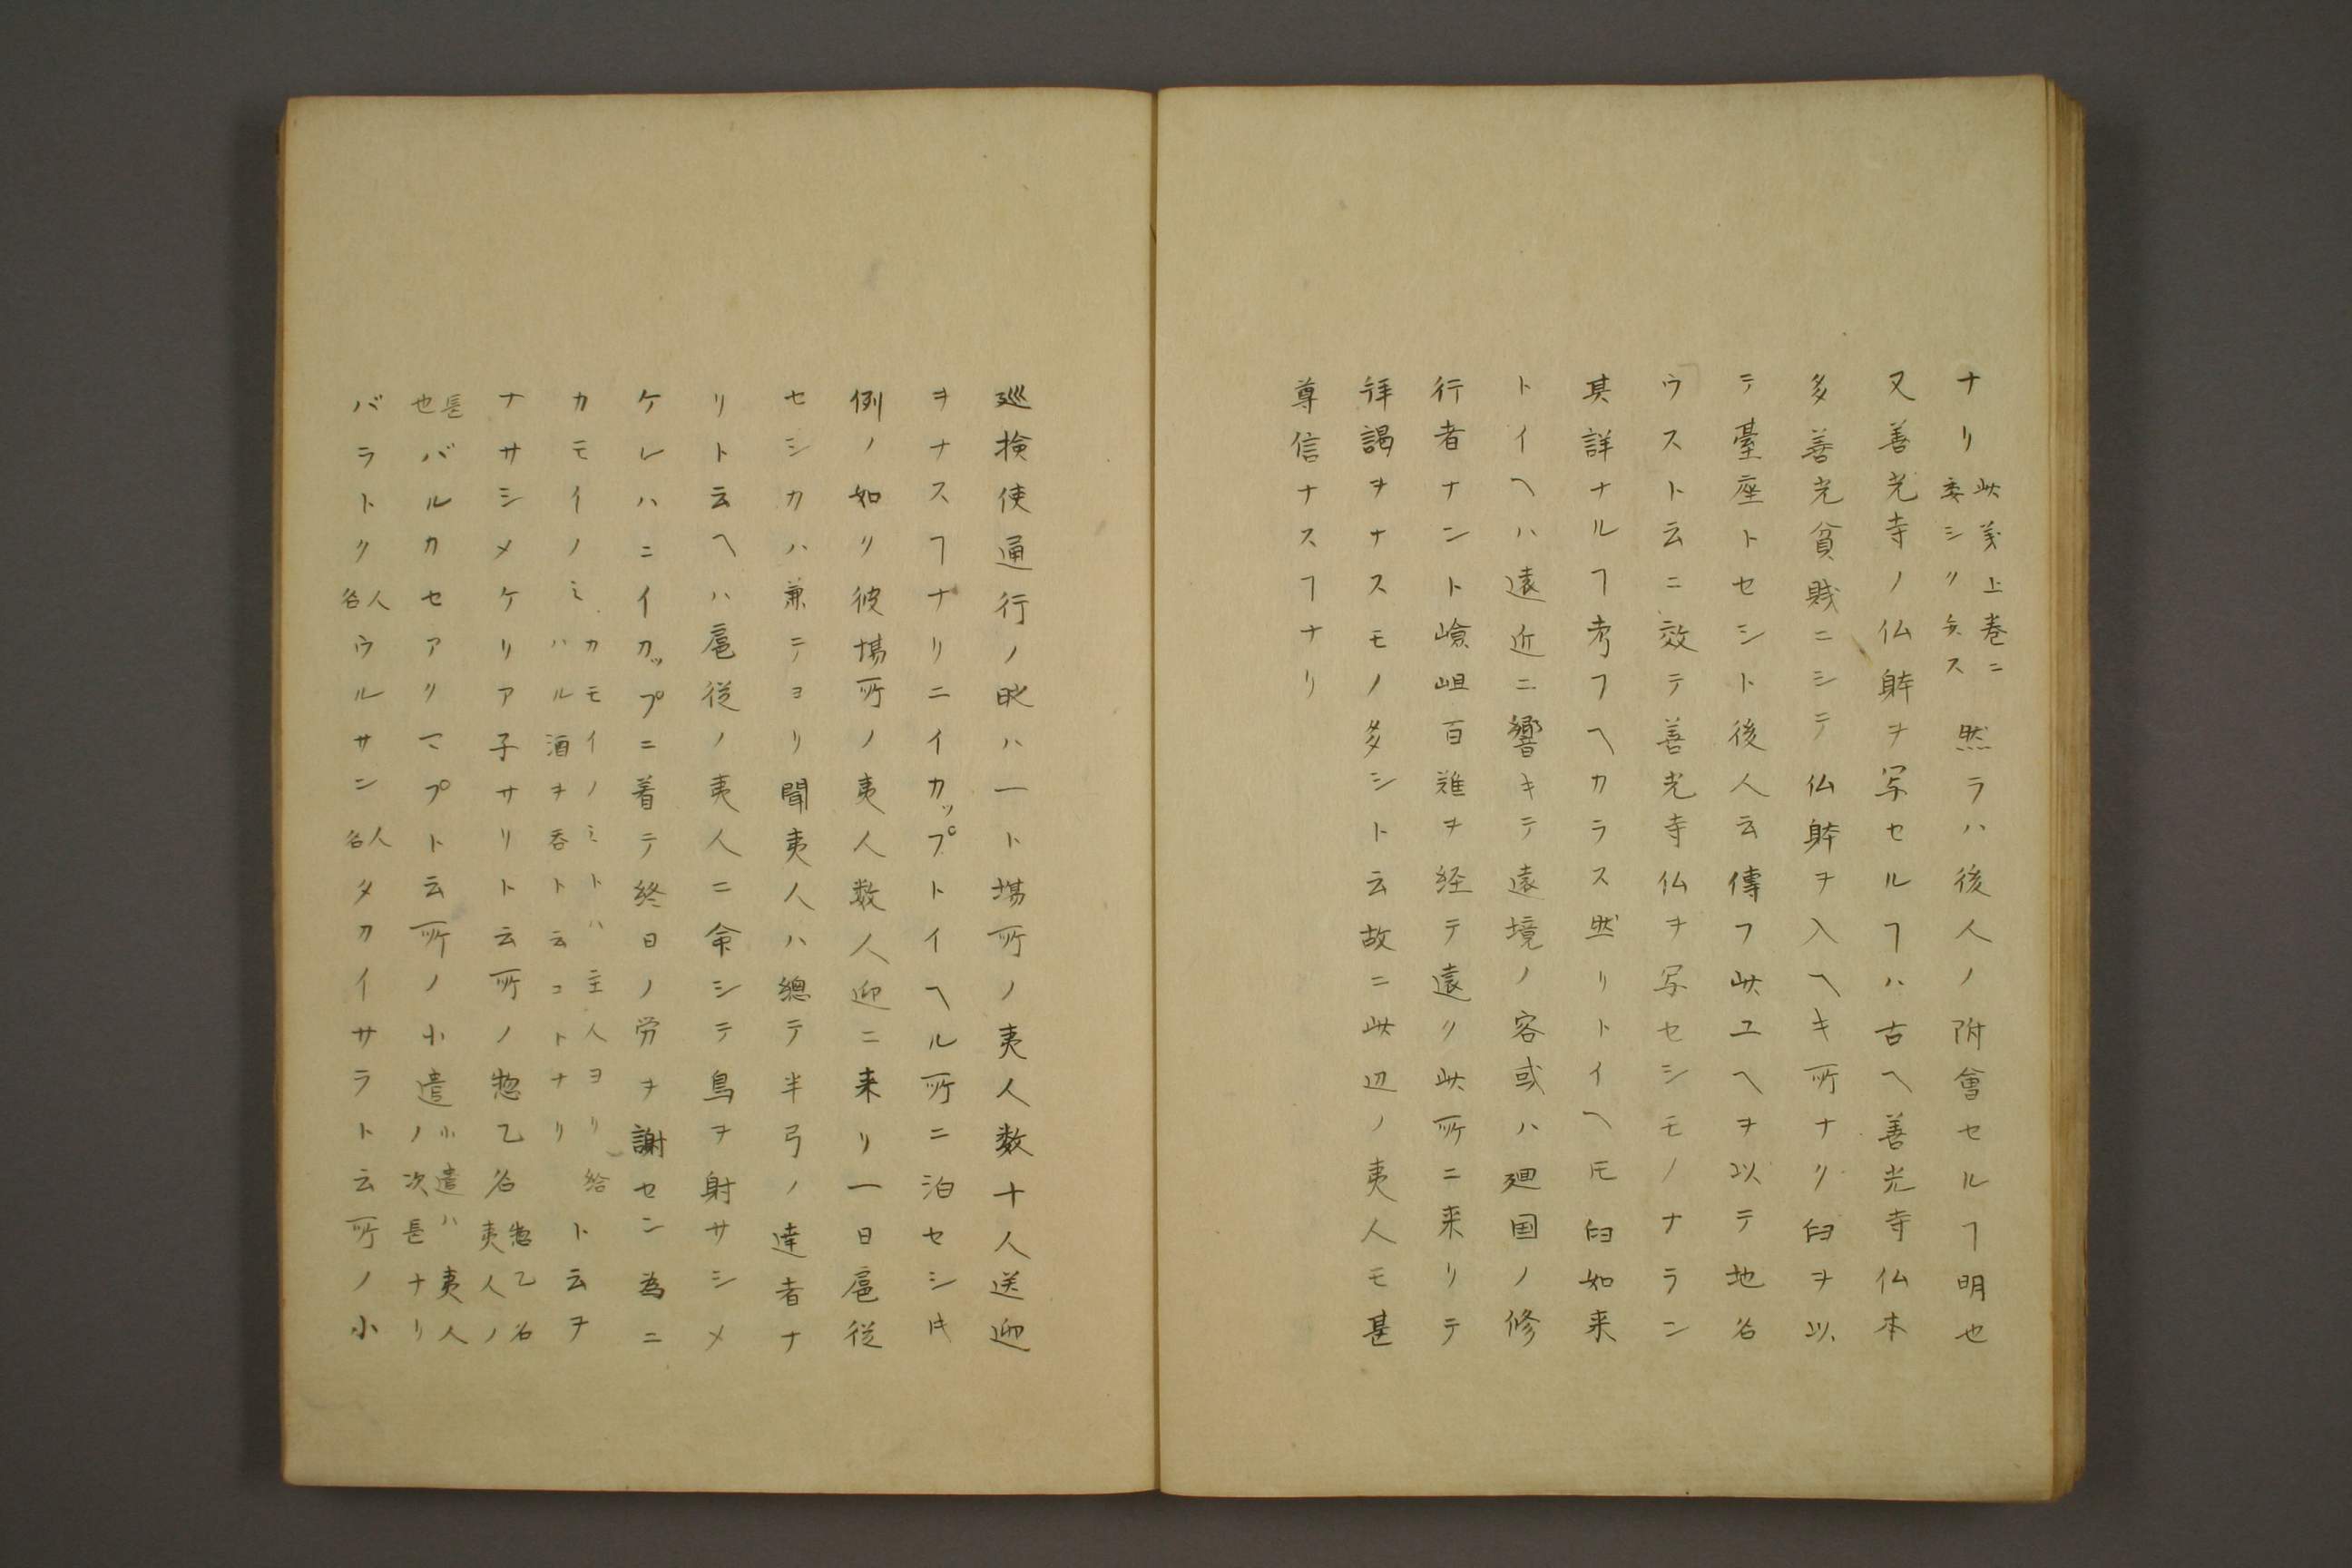 ナリ此義上巻ニ委シリ矣ス然ラハ後人ノ附會セルヿ明也
又善光寺ノ仏躰ヲ写セルヿハ古ヘ善光寺仏本
多善光貧賎ニシテ仏躰ヲ入ヘキ所ナリ臼ヲ以
テ臺座トセシト後人云傳フ此ユヘヲ以テ地名
ウスト云ニ效テ善光寺仏ヲ写セシモノナラン
其詳ナルヿ考フヘカラス然リトイヘ𪜈臼如来
トイヘハ遠近ニ響キテ遠境ノ客或ハ廻国ノ修
行者ナント嶮岨百難ヲ経テ遠ク此所ニ来リテ
拝謁ヲナスモノ多シト云故ニ此辺ノ夷人モ甚
尊信ナスヿナリ
巡検使通行ノ砌ハ一ト場所ノ夷人数十人送迎
ヲナスヿナリニイカップトイヘル所ニ泊セシ𪜈
例ノ如リ彼場所ノ夷人数人迎ニ来リ一日扈従
セシカハ兼テヨリ聞夷人ハ總テ半弓ノ達者ナ
リト云ヘハ扈従ノ夷人ニ命シテ鳥ヲ射サシメ
ケレハニイカップニ着テ終日ノ労ヲ謝セン為ニ
カモイノミカモイノミトハ主人ヨリ給ハル酒ヲ呑ト云コトナリト云ヲ
ナサシメケリア子サリト云所ノ惣乙名惣乙名夷人ノ
長也バルカセアリマプト云所ノ小遣小遣ハ夷人ノ次長ナリ
バラトク人名ウルサン人名タカイサラト云所ノ小